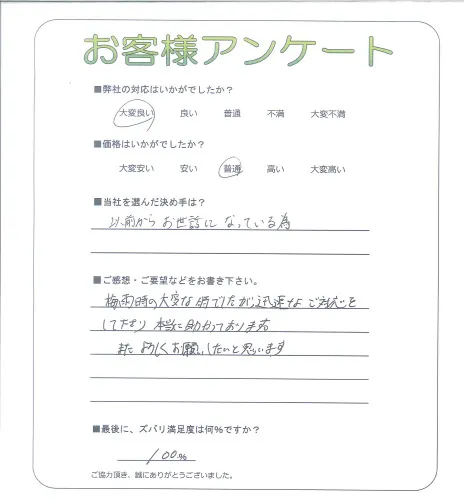 お客様アンケート
■弊社の対応はいかがでしたか？
大変良い 良い 普通 不満 大変不満
■価格はいかがでしたか？
大変安い 安い 普通 高い 大変高い
■当社を選んだ決め手は？
以前からお世話になっている為
■ご感想・ご要望などをお書き下さい。
梅雨時の大変な時でしたが迅速なご対応を
して下さり 本当に助かっております
また よろしくお願いしたいと思います
■最後に、ズバリ満足度は何％ですか？
100%
ご協力頂き、誠にありがとうございました。